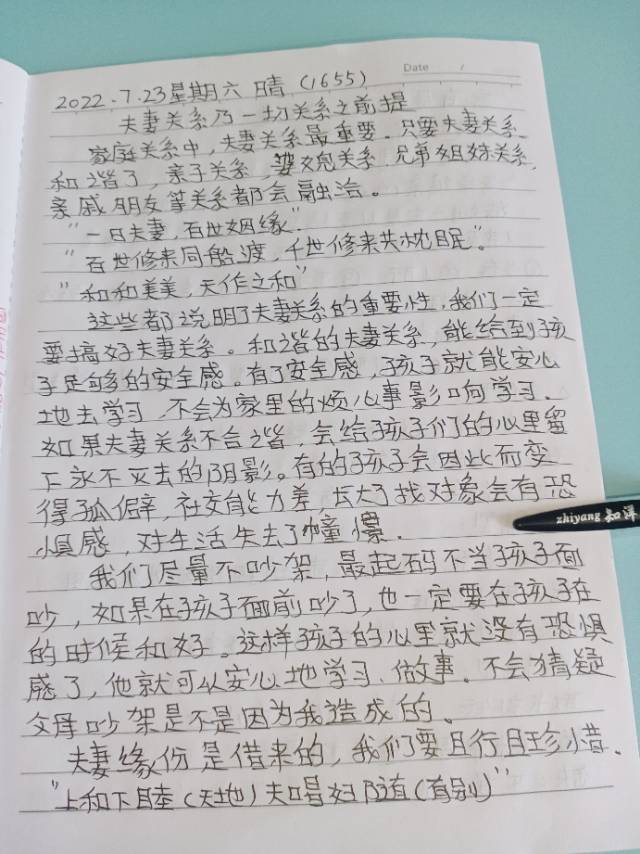 Date /
2022.7.23星期六 晴 (1655)
夫妻关系乃一切关系之前提
家庭关系中,夫妻关系最重要。只要夫妻关系
和谐了,亲子关系,婆媳关系,兄弟姐妹关系,
亲戚朋友等关系都会融洽。
"一日夫妻,百世姻缘"
"百世修来同船渡,千世修来共枕眠"。
"和和美美,天作之和"
这些都说明了夫妻关系的重要性,我们一定
要搞好夫妻关系。和谐的夫妻关系,能给到孩
子足够的安全感。有了安全感,孩子就能安心
地去学习,不会为家里的烦心事影响学习。
如果夫妻关系不合谐,会给孩子们的心里留
下永不灭去的阴影。有的孩子会因此而变
得孤僻,社交能力差,长大了找对象会有恐
惧感,对生活失去了憧憬.
zhiyang 知洋
我们尽量不吵架,最起码不当孩子面
吵,如果在孩子面前吵了,也一定要在孩子在
的时候和好。这样孩子的心里就没有恐惧
感了,他就可以安心地学习、做事。不会猜疑
父母吵架是不是因为我造成的。
夫妻缘份是借来的,我们要且行且珍惜.
"上和下睦(天地)夫唱妇随(有别)"